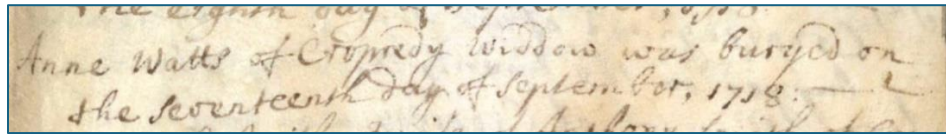 the eighth day of September, 1718.
Anne Watts of Cropredy Widdow was buryed on
the seventeenth day of September, 1718.